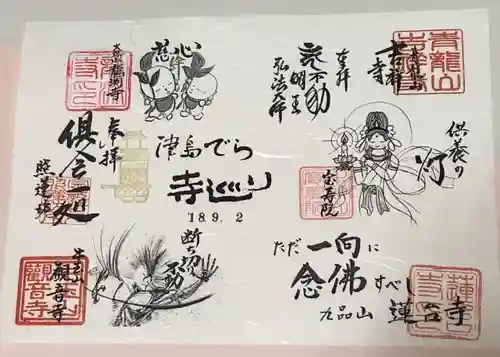 慈心
奉拝
倶会一処
照蓮坊
津島でら
寺巡り
18.9.2
奉拝
荒不動
明王
弘法大師
青龍山
吉祥寺
供養の
灯
宝寿院
断ち切り
不動
牛玉山
観音寺
観音寺
ただ一向に
念佛すべし
九品山
蓮台寺